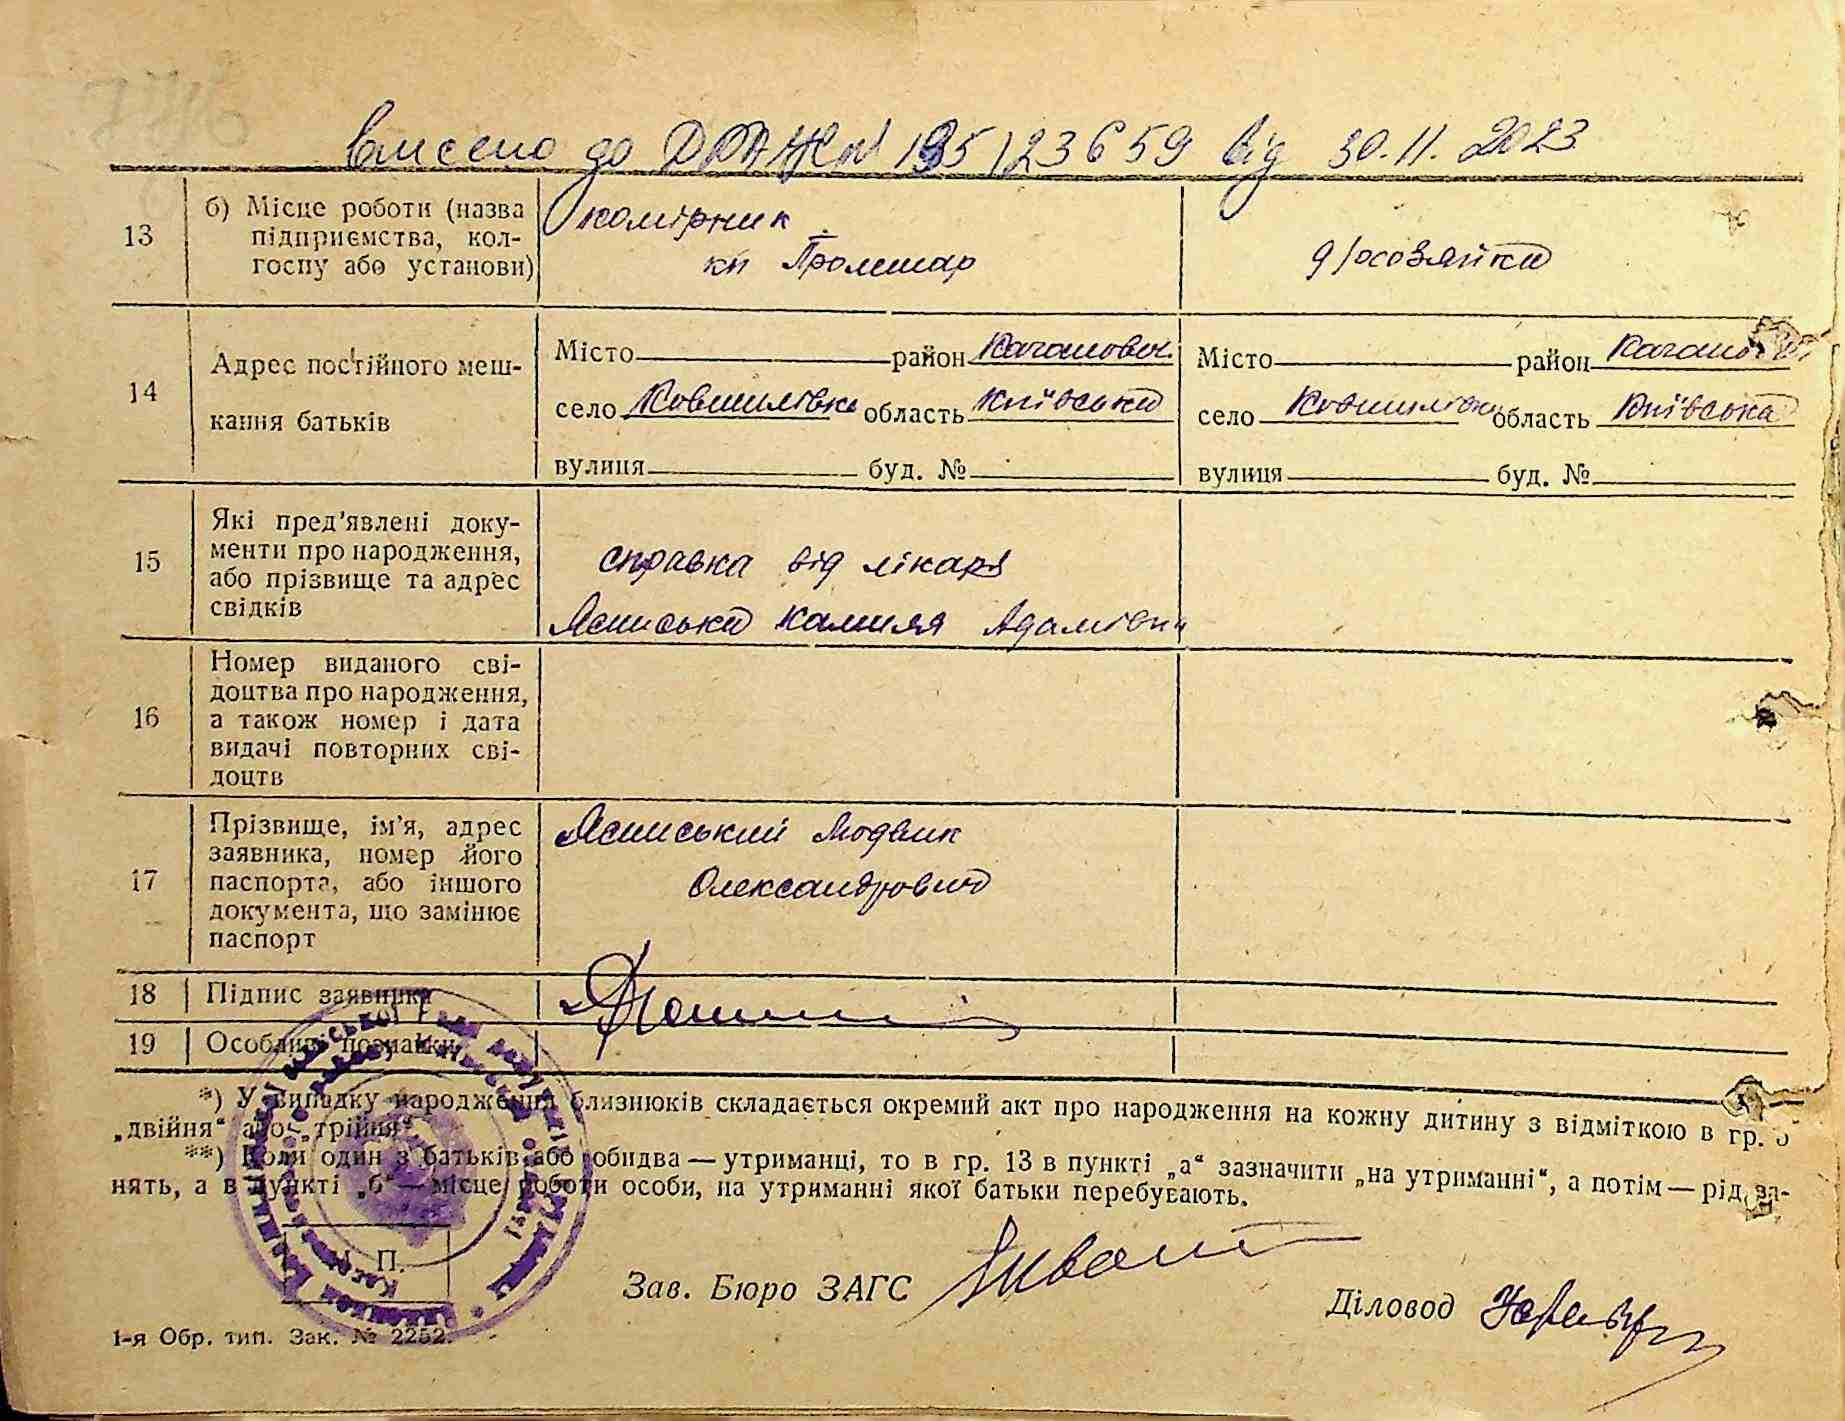 внесено до ДРАЦС № 195123659 від 30.11.2023
13
б) Місце роботи (назва підприємства, колгоспу або установи)
комірник
кп
д/госозяйка
14
Адрес постійного мешкання батьків
Місто район Кагановоч.
село Ковшилівка область Київська
вулиця буд. №
Місто район
село Ковшилівка область Київська
вулиця буд. №
15
Які пред'явлені документи про народження, або прізвище та адрес свідків
справка від лікаря
Ясинська Камиля Адамівни
16
Номер виданого свідоцтва про народження, а також номер і дата видачі повторних свідоцтв
17
Прізвище, ім'я, адрес заявника, номер його паспорта, або іншого документа, що замінює паспорт
Ясинський Людвик
Олександрович
18 Підпис заявника
19 Особливі познавки
*) У випадку народження близнюків складається окремий акт про народження на кожну дитину з відміткою в гр. 5
„двійня“ або „трійня“
**) Коли один з батьків або обидва — утриманці, то в гр. 13 в пункті „а“ зазначити „на утриманні“, а потім — рід за-
нять, а в пункті „б“ — місце роботи особи, на утриманні якої батьки перебувають.
М. П.
Зав. Бюро ЗАГС
Діловод
1-я Обр. тип. Зак. № 2252.